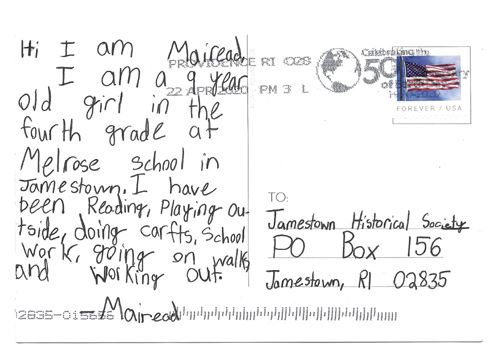 Hi I am Mairead.
I am a 9 year
old girl in the
fourth grade at
Melrose school in
Jamestown. I have
been Reading, Playing ou-
tside, doing carfts, School
work, going on walks
and working out.
—Mairead
PROVIDENCE RI 028
22 APR 2020 PM 3 L
Celebrating the
50
FOREVER / USA
TO:
Jamestown Historical Society
PO Box 156
Jamestown, RI 02835
02835-015656